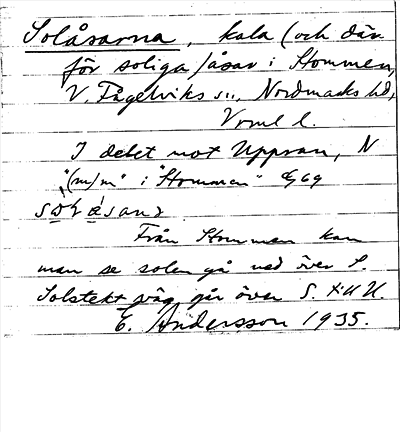 Solåsarna, kala (och där-
för soliga) åsar i Hommen,
V. Fågelviks sn., Nordmarks hd,
Vrml l.
I delet mot Uppran, N
"(m/m" i "Hommen" Eg 69
Från Hommen kan
man se solen gå ned över S.
Solstekt väg går över S. 
E. Andersson 1935.